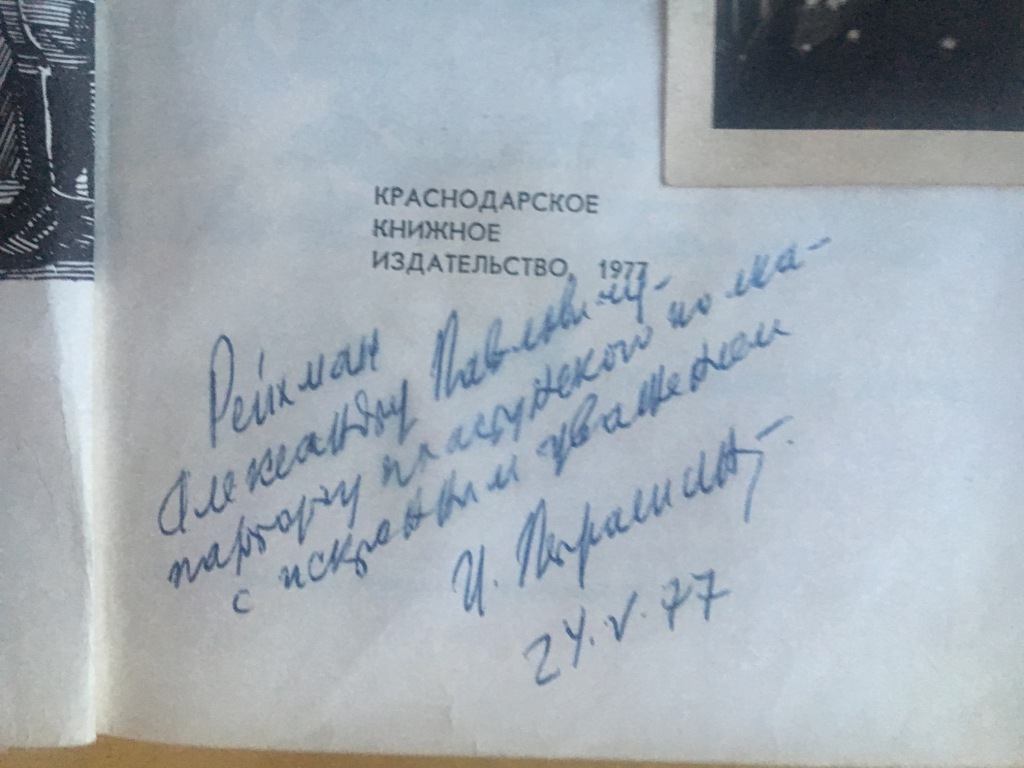 КРАСНОДАРСКОЕ
КНИЖНОЕ
ИЗДАТЕЛЬСТВО, 1977
Рейхман
Александру Павлови-
парторгу пластунского по
с искренним уважением
И.
24.V.77